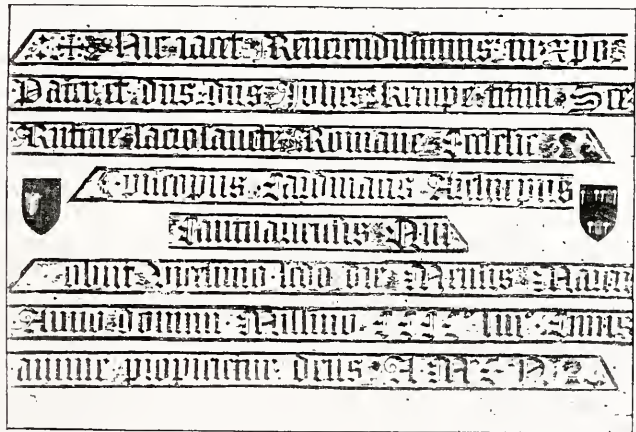 + Hic iacet Reuerendissimus in xpo
Pater et dns dns Johes kempe tituli Sce
Rufine sacrosancte Romane Ecclesie
Episcopus Cardinalis Archiepus
Cantuariensis Qui
obiit vicesimo scdo die Mensis Marcii
Anno domini Millimo CCCC liii Cuius
anime propicietur deus AMEN